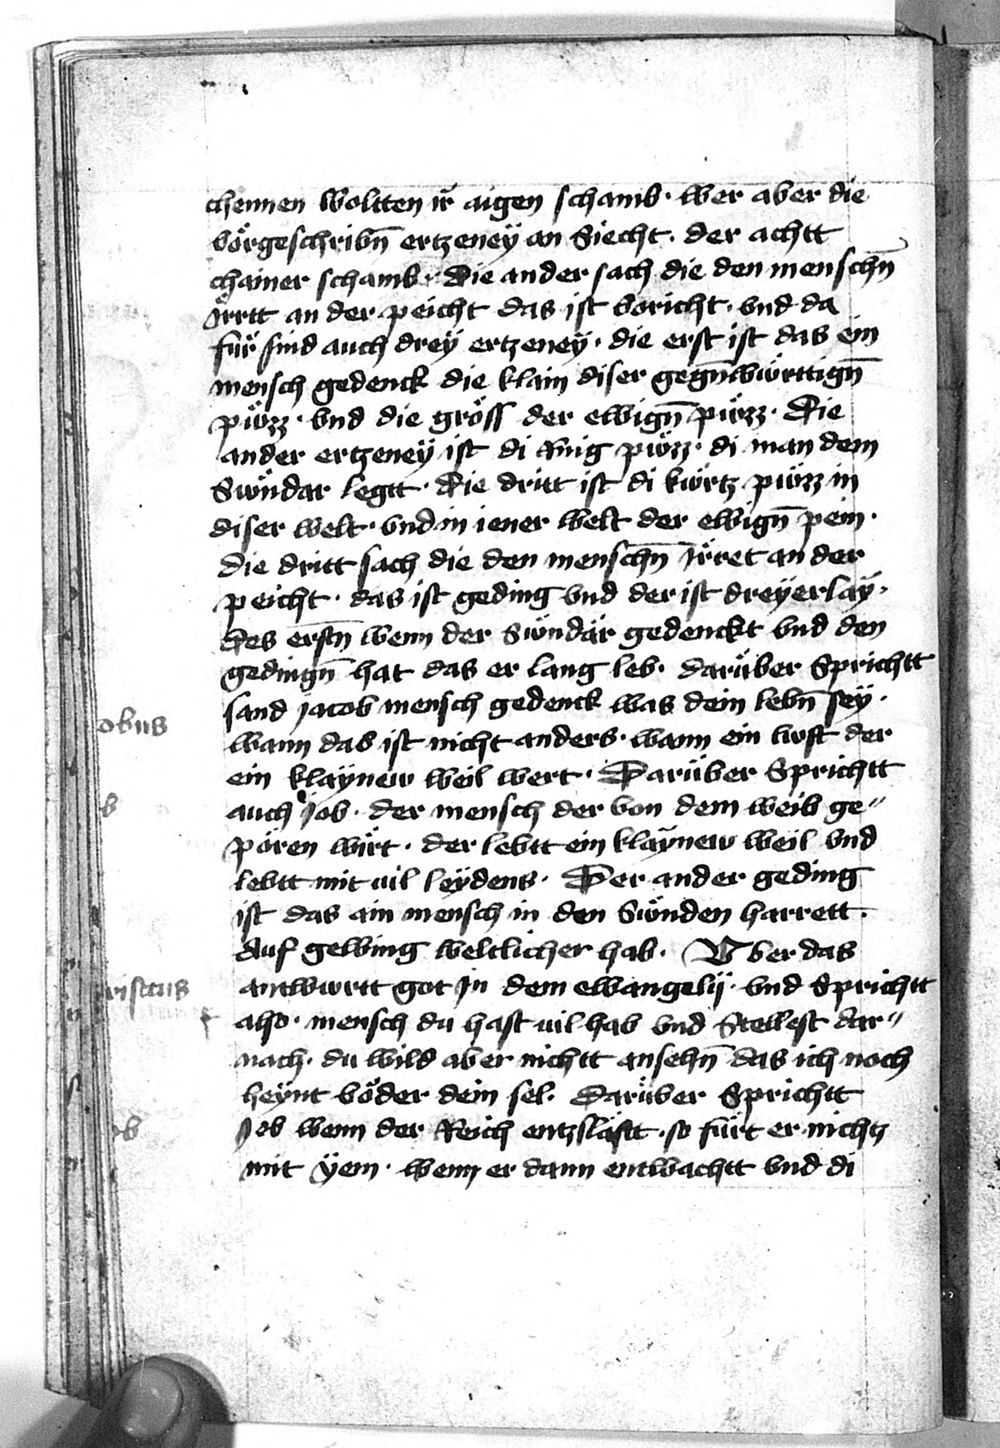 chennen woltten ir̈ aigen schamb · wer aber die
vörgeschribn̄ ertzeneÿ an Siecht · der achtt
chainer schamb · Die ander sach die den menschn̄
Ïrrtt an der peicht das ist voricht · vnd da
für sind auch dreÿ ertzeneÿ · die erst ist das ein
mensch gedenck die klain diser gegn̄württign̄
püzz · vnd die gröss der ewign̄ püzz · Die
ander ertzeneÿ ist di püzz · di man dem
Sündar legtt · Die dritt ist di kürtz püzz in
diser welt · vnd in iener welt der ewign̄ pein ·
die dritt sach die den menschn̄ Ïrret an der
peicht · das ist geding vnd der ist dreÿerlaÿ ·
des erstn̄ wenn der Sündär gedenckt vnd den
gedingn̄ hat das er lang leb · darüber Sprichtt
sand jacob mensch gedenck was dein lebn̄ seÿ ·
obus
wann das ist nicht anders · wann ein luft der
ein klaÿnew weil wert · Darüber Sprichtt
auch Job · der mensch der von dem weib ge″
b
pören wirt · der lebtt ein klaÿnew weil vnd
lebtt mit uil leÿdens · Der ander geding
ist das ain mensch in den Sünden harrett ·
auf gewing weltlicher hab · Vber das
antwurtt got in dem ewangelij · vnd Sprichtt
ristus
also · mensch du hast uil hab vnd Stellest dar″
nach · du wild aber nichtt ansehn̄ das ich noch
heÿnt vöder dein sel · Darüber Sprichtt
Job wenn der Reich entzslafft · so fürt er nichtz
ob
mit ÿem · wenn er dann entwachtt vnd di